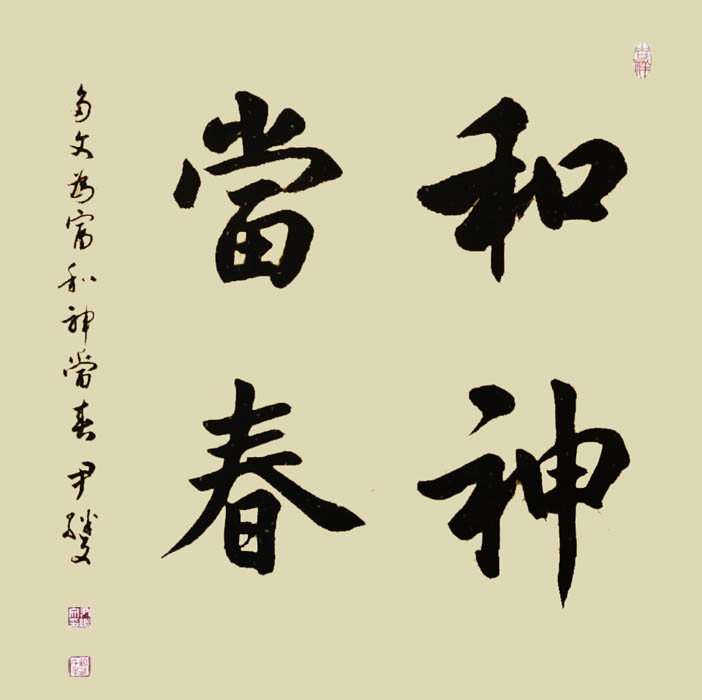 和神
當春
多文為富和神當春 尹
吉祥